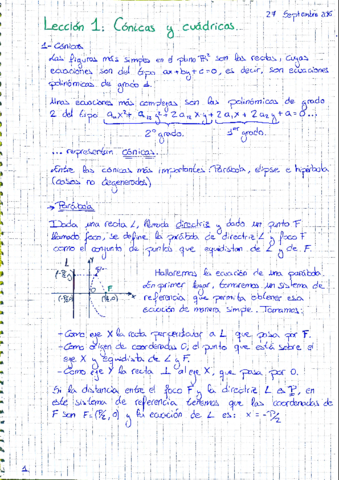 27 Septiembre 2016
Lección 1: Cónicas y cuádricas.
1- Cónicas
Las figuras más simples en el plano ℝ² son las rectas, cuyas
ecuaciones son del tipo ax+by+c=0, es decir, son ecuaciones
polinómicas de grado 1.
Unas ecuaciones más complejas son las polinómicas de grado
2 del tipo a₁₁x² + a₂₂y² + 2a₁₂xy + 2a₁x + 2a₂y + a = 0...
2º grado. 1er grado.
... representan cónicas.
Entre las cónicas más importantes: Parábola, elipse e hipérbola
(casos no degenerados)
→ Parábola
Dada una recta L, llamada directriz y dado un punto F
llamado foco, se define la parábola de directriz L y foco F
como el conjunto de puntos que equidistan de L y de F.
L
(-P/2,y)
(-P/2,0) F (P/2,0) x
Hallaremos la ecuación de una parábola.
En primer lugar, tomaremos un sistema de
referencia que permita obtener esa
ecuación de manera simple. Tomamos:
- Como eje X la recta perpendicular a L que pasa por F.
- Como origen de coordenadas O, el punto que está sobre el
eje X y equidista de L y F.
- Como eje Y la recta ⊥ al eje X, que pasa por O.
Si la distancia entre el foco F y la directriz L es P, en
este sistema de referencia tenemos que las coordenadas de
F son F=(P/2, 0) y la ecuación de L es: x = -P/2
1